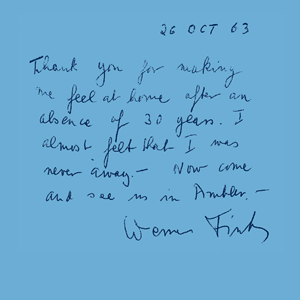 26 OCT 63
Thank you for making
me feel at home after an
absence of 30 years. I
almost felt that I was
never away. — Now come
and see us in Ambler. —
Werner